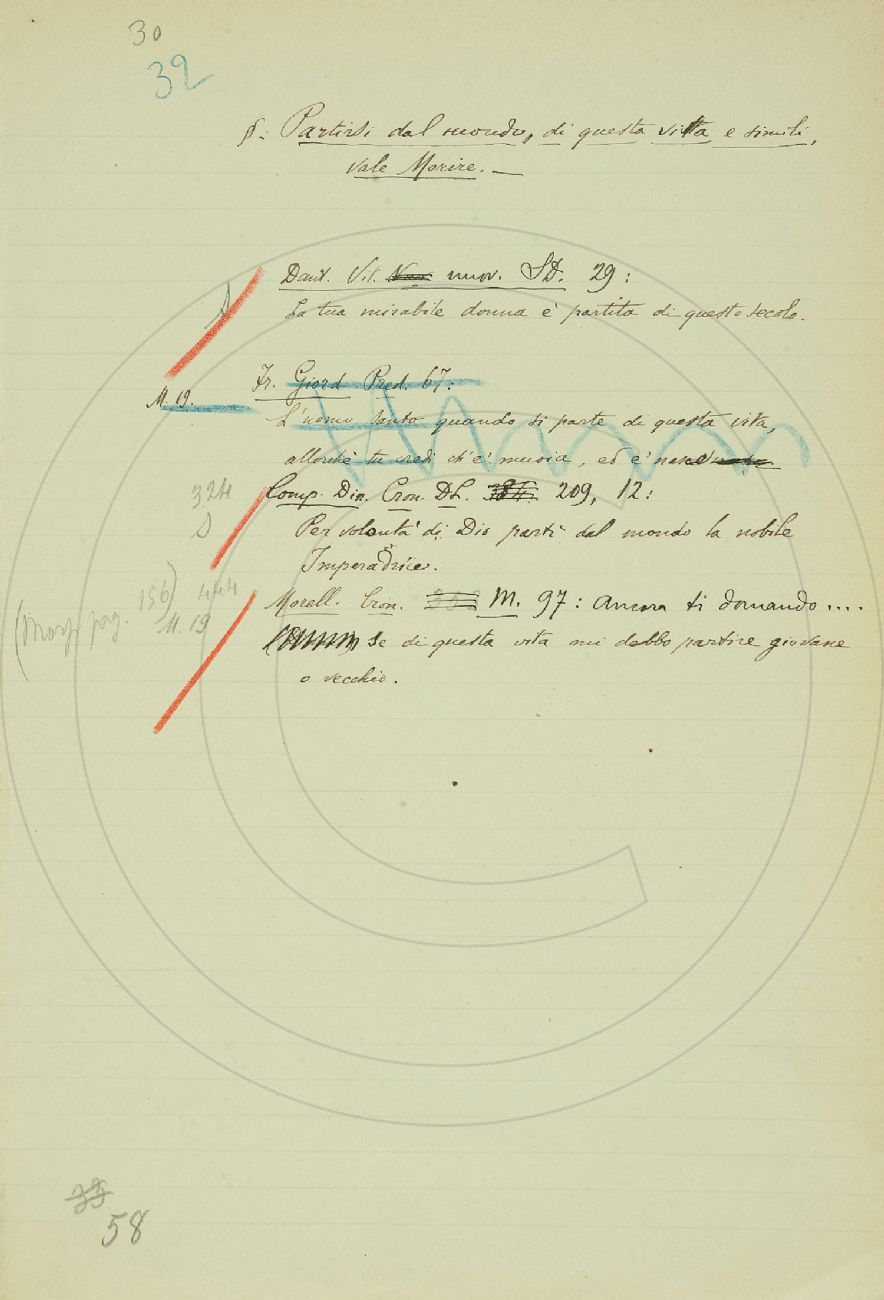 30
32
§: Partirsi dal mondo, di questa vita e simili,
vale Morire. —
Dant. Vit. nuov. SD. 29:
S
La tua mirabile donna è partita di questo secolo.
Fr. Giord Pred. 67:
M. 19.
L'uomo santo quando si parte di questa vita,
allorchè tu credi ch'e' muoia, ed e' nasce
3.24
Comp. Din. Cron. DL. 209, 12:
S
Per volontà di Dio partì dal mondo la nobile
Imperadrice.
444
Morell. Cron. M. 97: Ancora ti domando....
(Morp. pag. 156) M. 19
Se di questa vita mi debbo partire giovane
o vecchio.
58